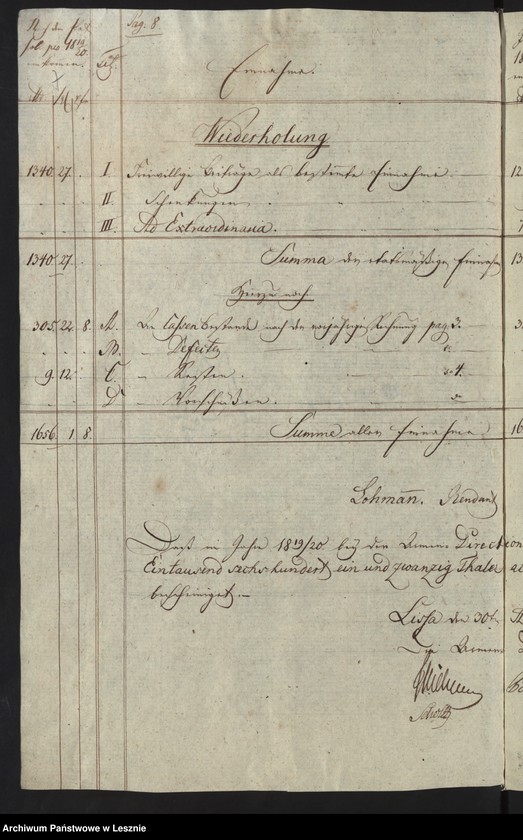 Pag. 8.
pro 18 19/20.
Tit.
Einnahme.
Wiederholung
1340. 27. . I Freiwillige Beiträge als bestimte Einnahme
II Schenkungen
III. Ad Extraordinaria.
1340. 27. Summa der etatsmäßigen Einnahm
Hierzu noch
305. 22. 8. A. An Cassen Bestande nach der vorjährigen Rechnung pag. 3.
B. " Defecten
9. 12. . C. " Resten 4.
D " Vorschüßen.
1656. 1. 8. Summe aller Einnahme
Lohmann. Rendant
Daß im Jahre 1819/20 bey der Armen Direction
Eintausend sechs hundert ein und zwanzig Thaler
bescheiniget.
Lissa den 30t.
Die Armen
Archiwum Państwowe w Lesznie